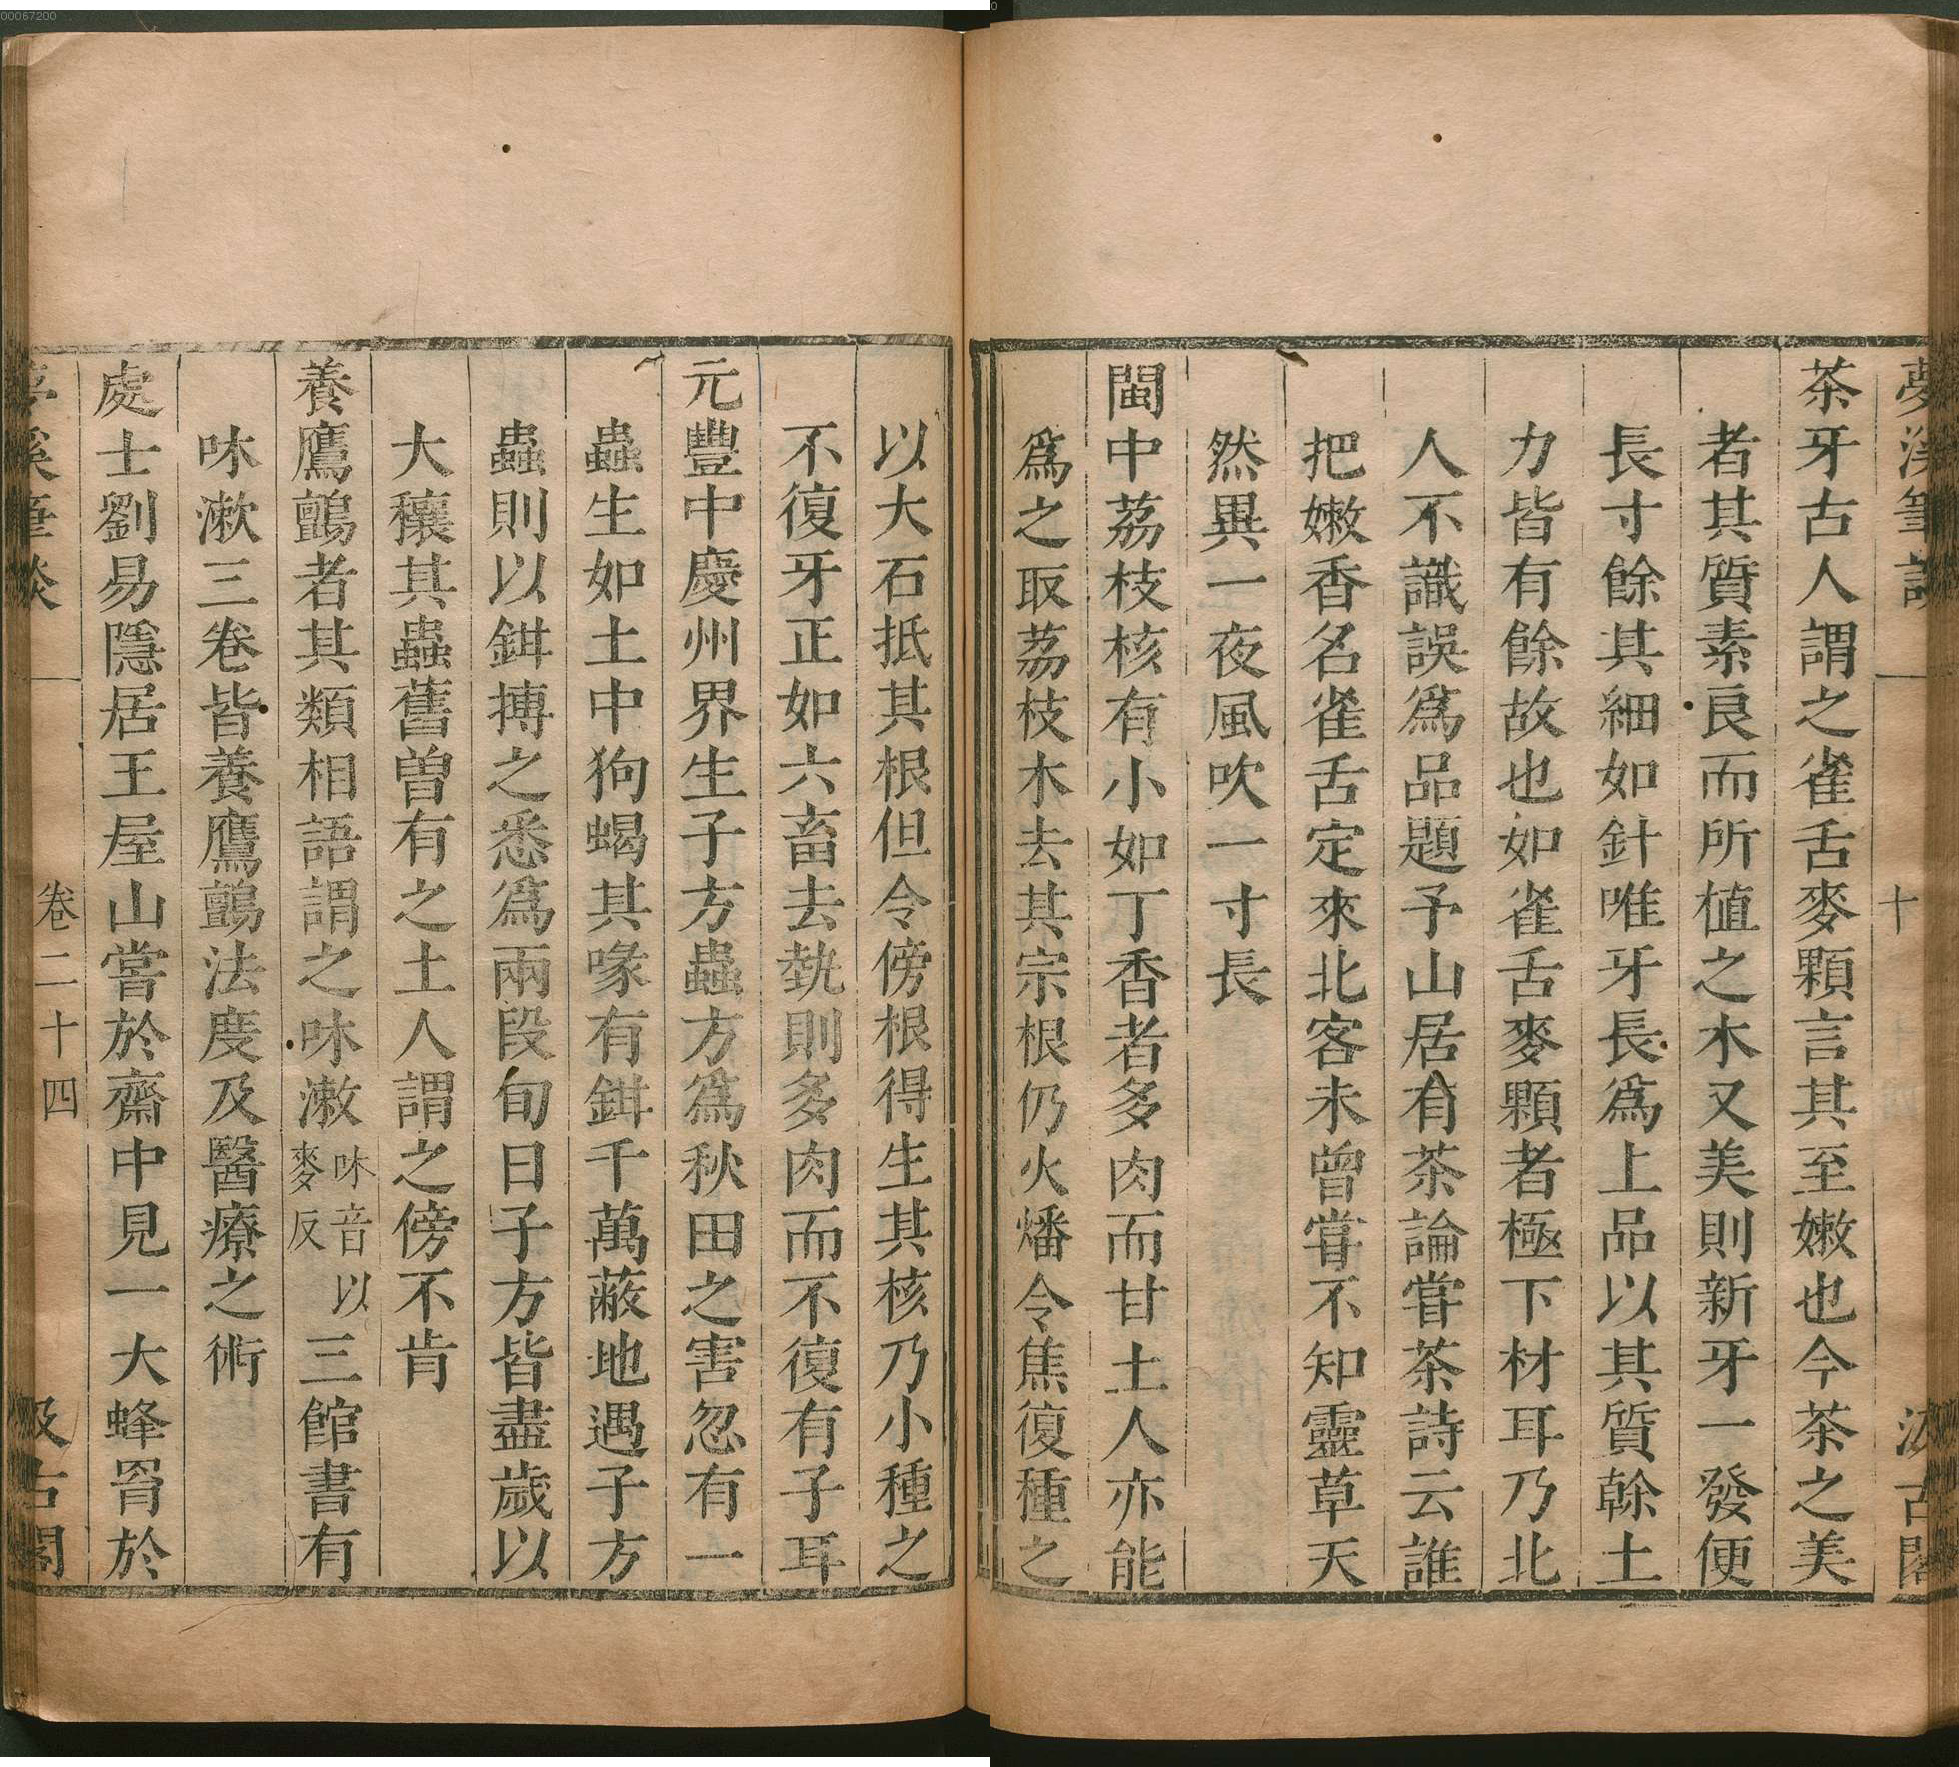 夢溪筆談 十 汲古閣
茶牙古人謂之雀舌麥顆言其至嫩也今茶之美
者其質素良而所植之木又美則新牙一發便
長寸餘其細如針唯牙長爲上品以其質榦土
力皆有餘故也如雀舌麥顆者極下材耳乃北
人不識誤爲品題予山居有茶論嘗茶詩云誰
把嫩香名雀舌定來北客未曾嘗不知靈草天
然異一夜風吹一寸長
閩中荔枝核有小如丁香者多肉而甘土人亦能
爲之取荔枝木去其宗根仍火燔令焦復種之
以大石抵其根但令傍根得生其核乃小種之
不復牙正如六畜去執則多肉而不復有子耳
元豐中慶州界生子方蟲方爲秋田之害忽有一
蟲生如土中狗蝎其喙有鉗千萬蔽地遇子方
蟲則以鉗搏之悉爲兩段旬日子方皆盡歲以
大穰其蟲舊曽有之土人謂之傍不肯
養鷹鸇者其類相語謂之𠰌漱𠰌音以麥反三館書有
𠰌漱三卷皆養鷹鸇法度及醫療之術
處士劉易隱居王屋山嘗於齋中見一大蜂罥於
夢溪筆談 卷二十四 汲古閣
00067200